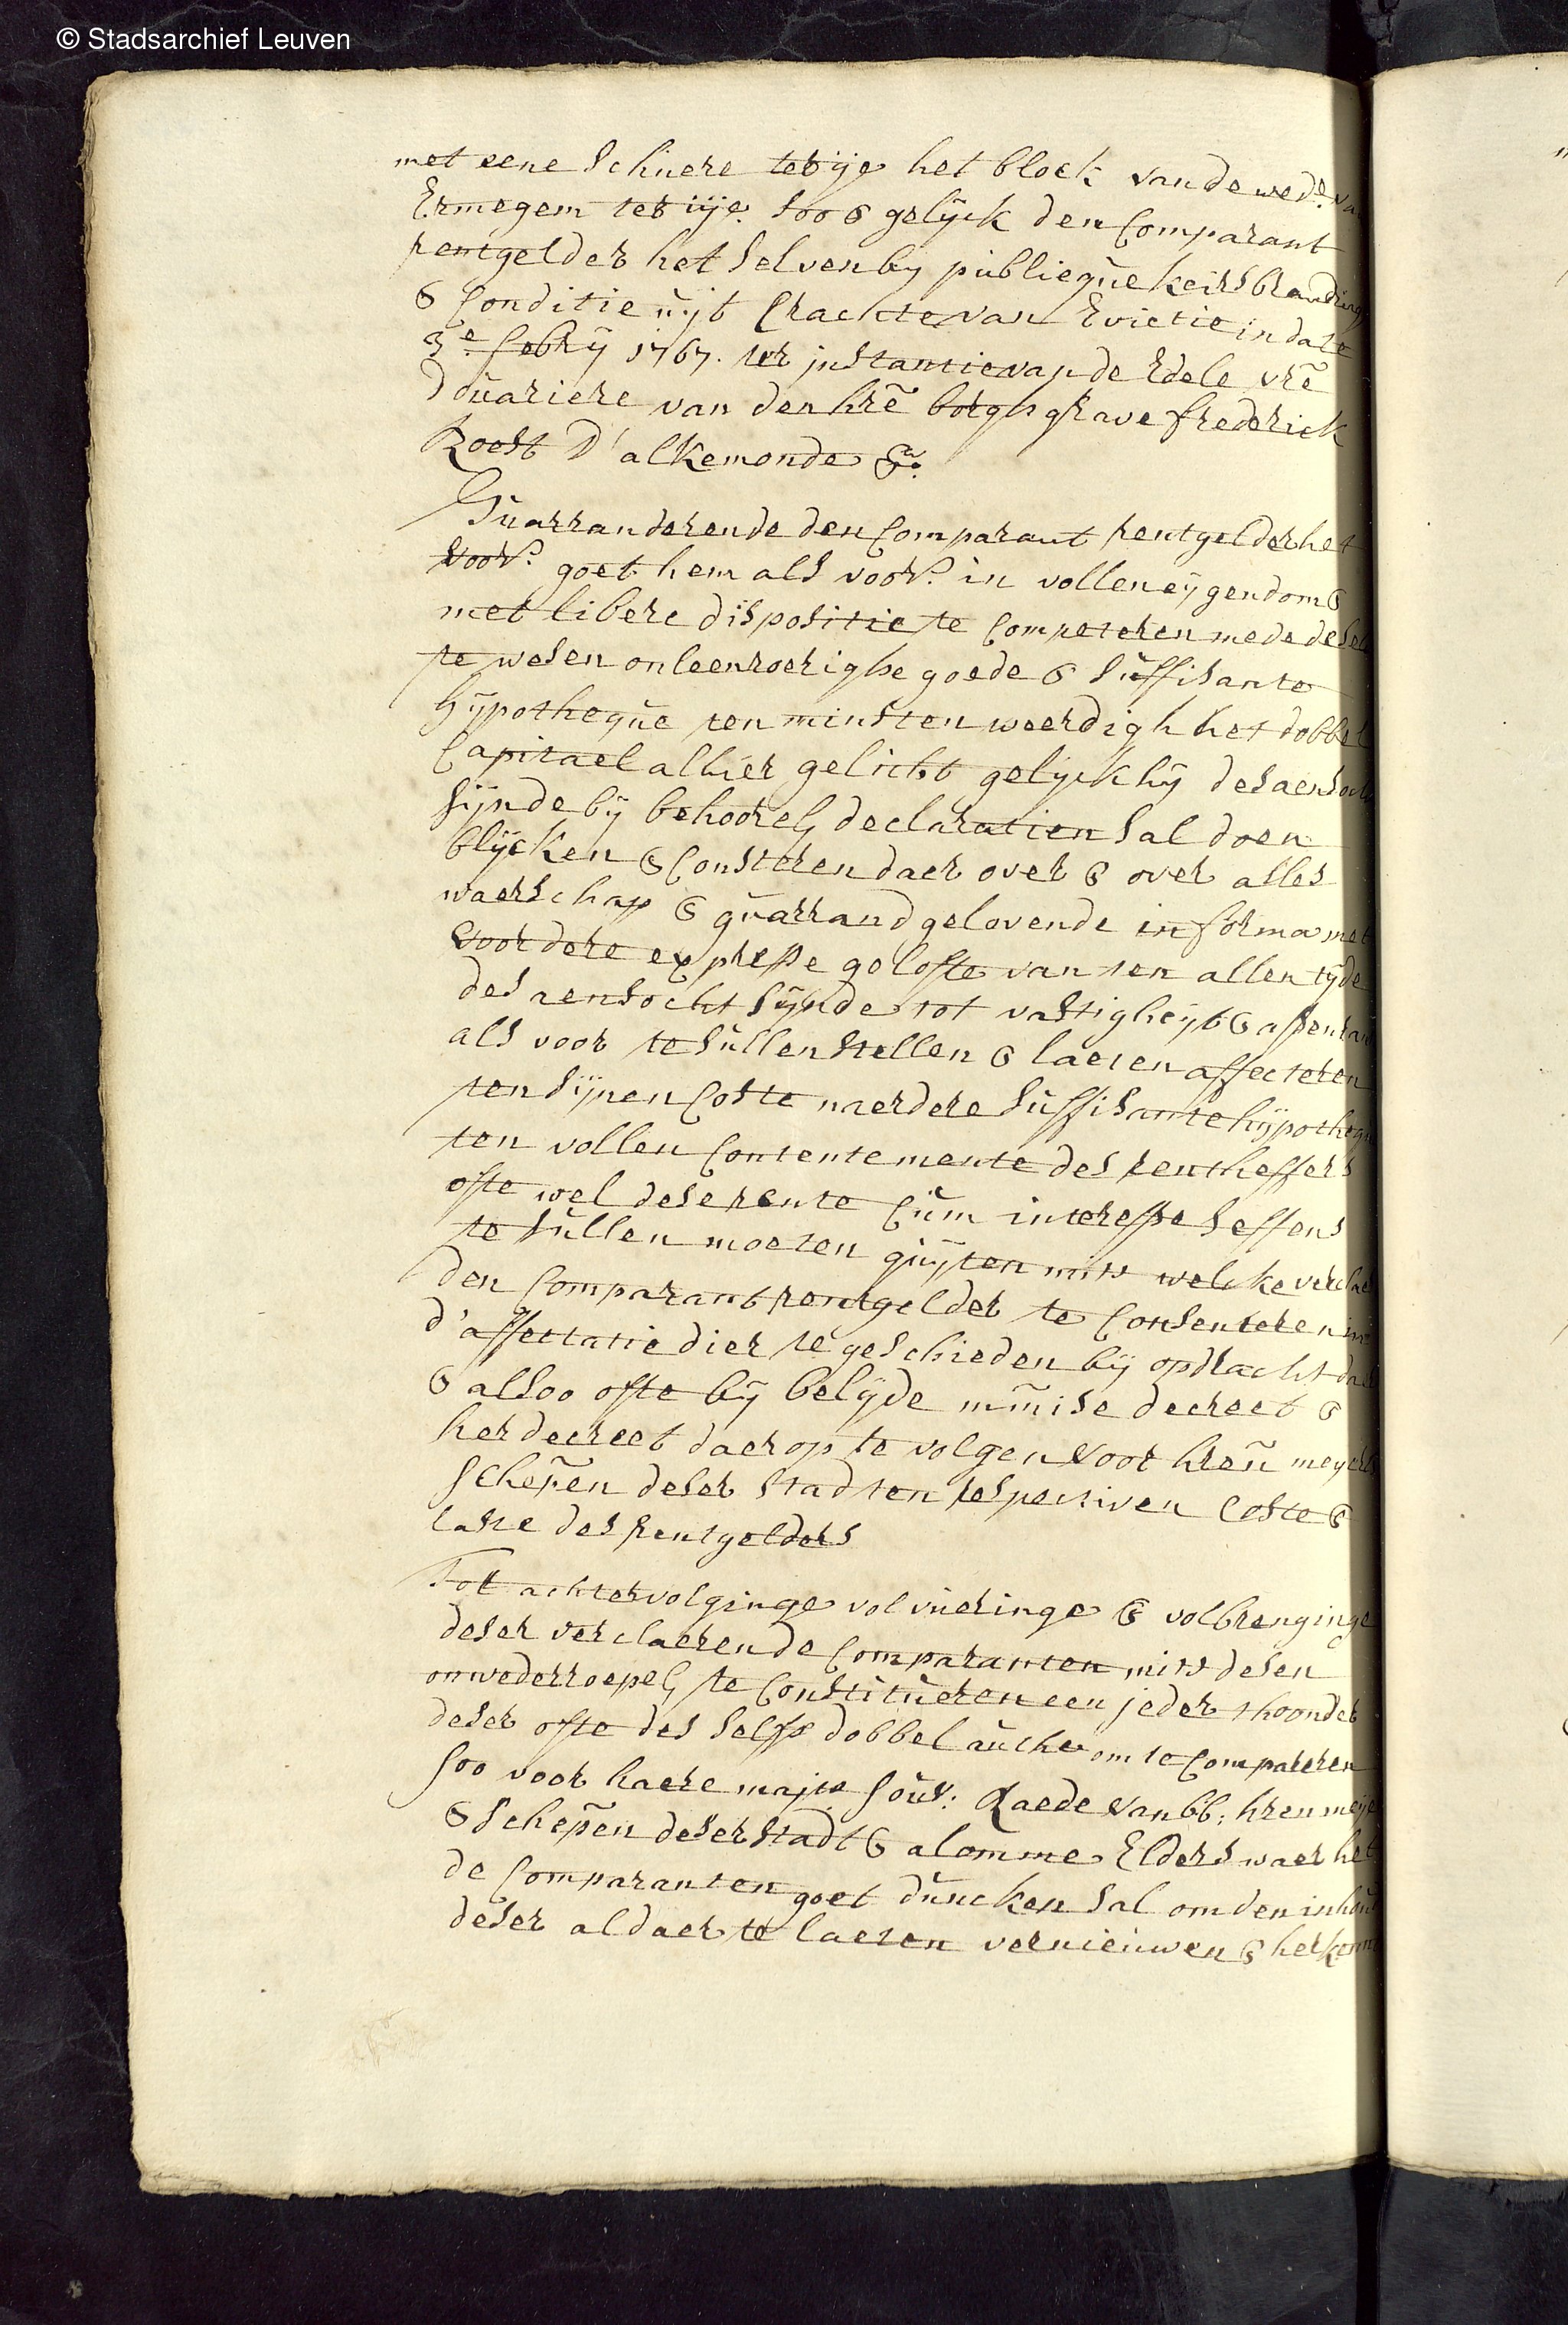 © Stadsarchief Leuven
met eene Schuere ter ije het block van de wed.e van
Ermegem ter iije. soo & gelijck den Comparant
rentgelder het selven by publieque keirsbrandinge
& Conditie uijt Crachte van Evictie in date
3.e febrij 1767. ter instantie van de Edele vrẽ
Douariere van den hrẽ borghgrave frederick
Roest D'alkemonde &a.
Guarranderende den Comparant rentgelder het
voors. goet hem als voors. in vollen eijgendom &
met libere dispositie te Competeren mede desel
te wesen onleenroerighe goede & suffisante
hijpotheque ten minsten weerdigh het dobbel
Capitael alhier gelicht gelijck hij des aensocht
sijnde bij behoorel: declaratien sal doen
blijcken & Consteren daer over & over alles
waerschap & guarrand gelovende in forma met
voordere expresse gelofte van ten allen tijde
des aensocht sijnde tot vastigheijt & assentan
als voor te sullen stellen & laeten affecteren
ten sijnen Coste naerdere suffisante hijpotheque
ten vollen Contentemente des rentheffers
ofte wel dese rente Cum interesse seffens
te sullen moeten quijten mits welcke verclaert
den Comparant rentgelder te Consenteren in
d'affectatie dier te geschieden bij opdracht daer
& alsoo ofte bij belijde mm̃ise decreet &
herdecreet daer op te volgen voor hreñ meyer &
schepẽn deser stadt ten respectiven Coste &
laste des Rentgelders
Tot achtervolginge volvueringe & volbrenginge
deser verclaerende Comparanten mits desen
onwederroepel: te Constitueren een jeder thoonder
deser ofte des selfs dobbel auth: om te Compareren
soo voor haere majts. souv: Raede van bb: hren meijer
& schepẽn deser stadt & alomme Elders waer het
de Comparanten goet duncken sal om den inhout
deser aldaer te laeten vernieuwen & herkenn